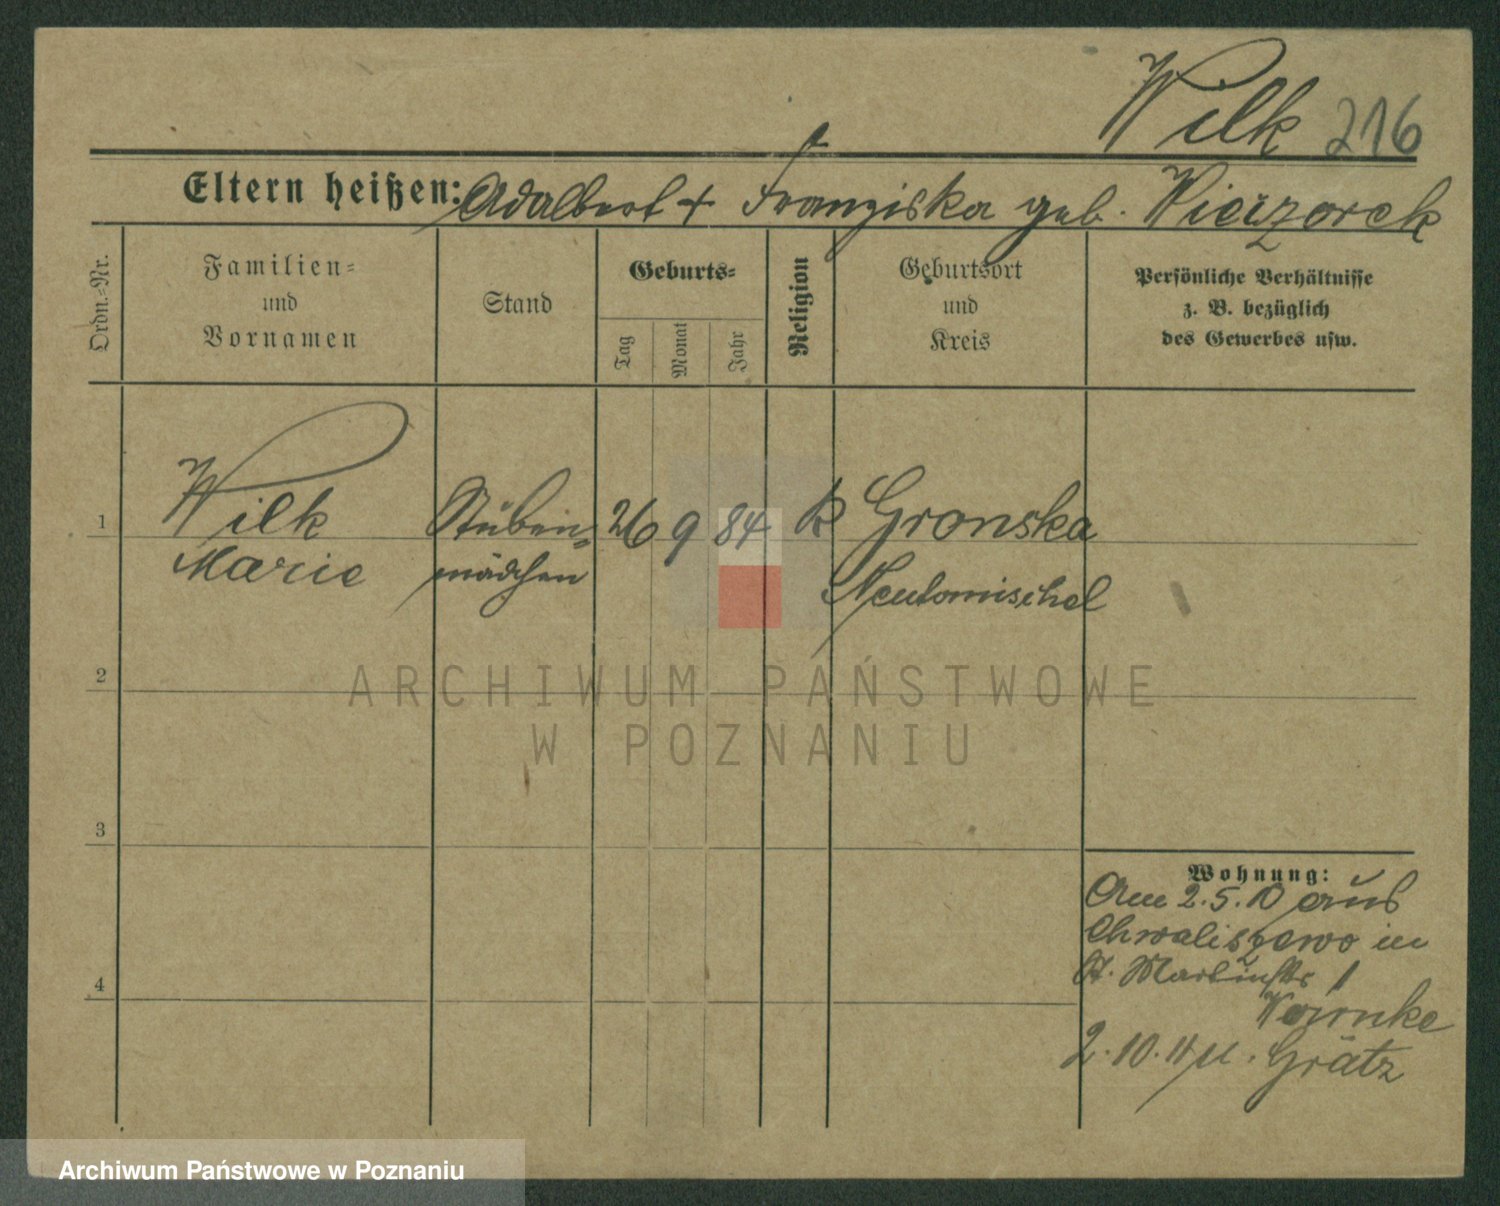 Wilk 216
Eltern heißen: Adalbert + Franziska geb. Wieczorek
Ordn.=Nr.
Familien=
und
Vornamen
Stand
Geburts=
Tag
Monat
Jahr
Religion
Geburtsort
und
Kreis
Persönliche Verhältnisse
z. B. bezüglich
des Gewerbes usw.
1
Wilk
Marie
Stuben=
mädchen
26 9 84 k
Gronska
Neutomischel
2
ARCHIWUM PAŃSTWOWE
W POZNANIU
3
Wohnung:
Am 2.5.10 aus
Chwaliszewo in
St. Martinstr 1
Warnke
4
2.10.11 u. Grätz
Archiwum Państwowe w Poznaniu